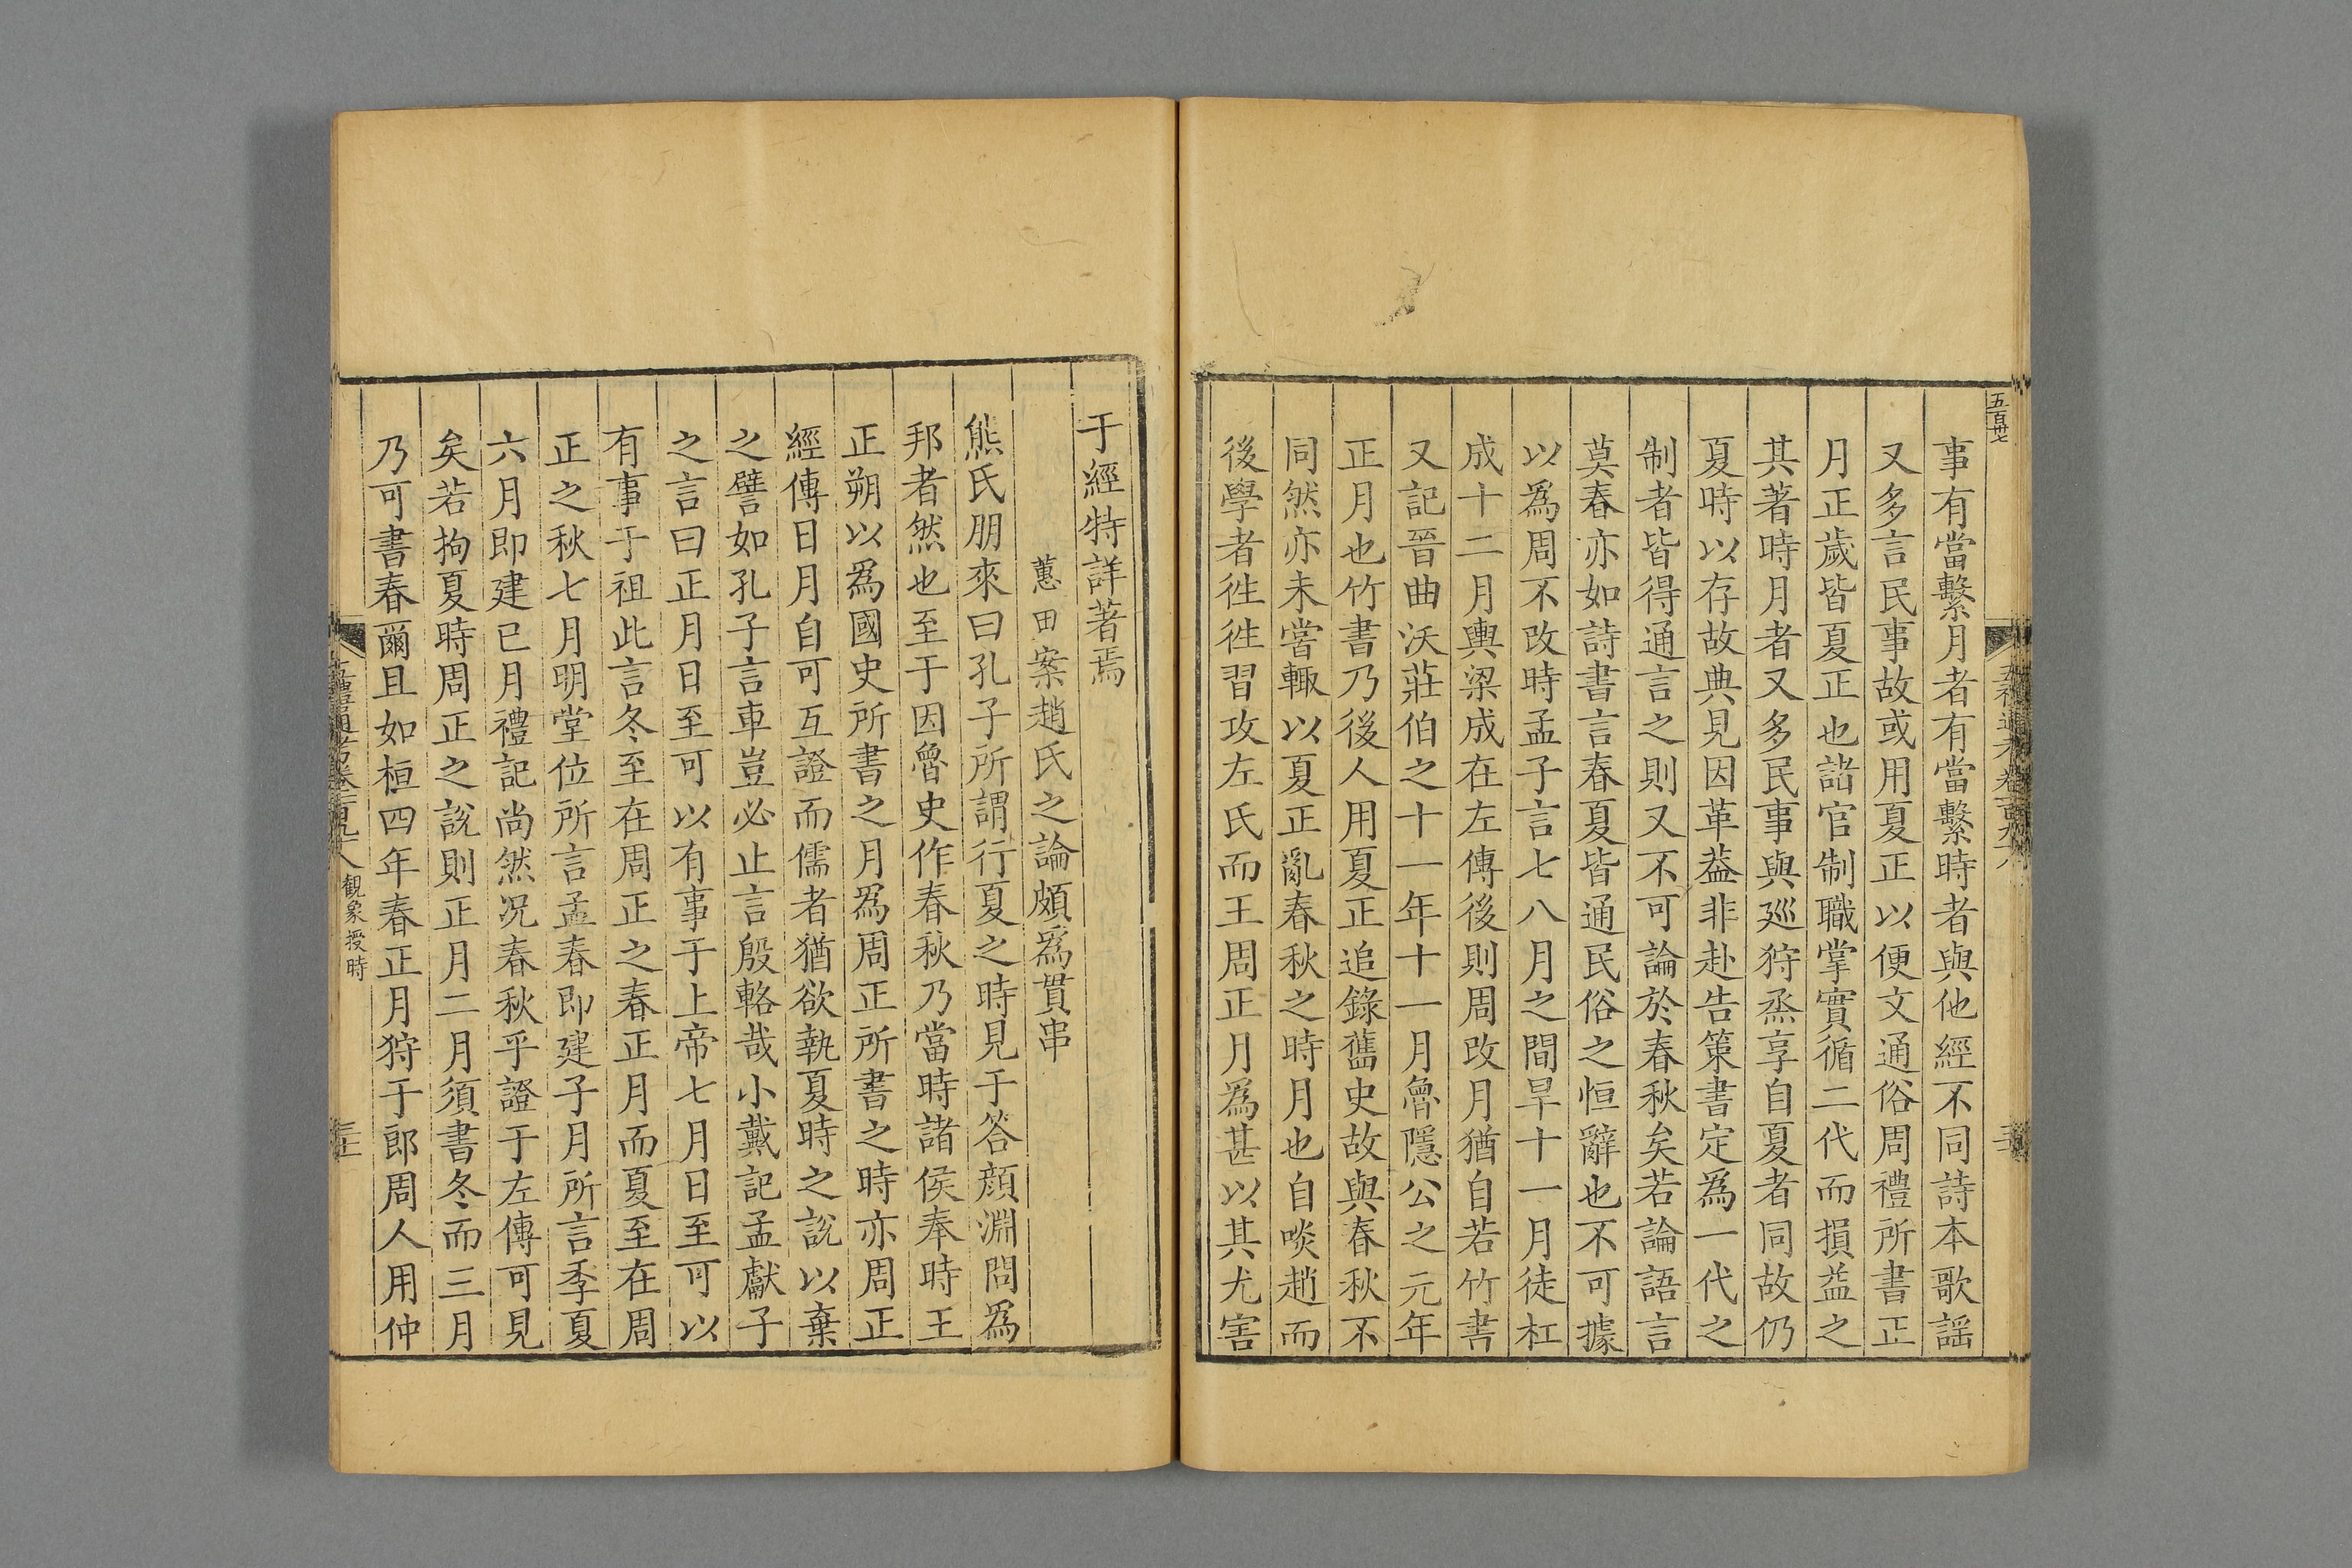 五百卅七
事有當繫月者有當繫時者與他經不同詩本歌謡
又多言民事故或用夏正以便文通俗周禮所書正
月正歲皆夏正也諸官制職掌實循二代而損益之
其著時月者又多民事與廵狩烝享自夏者同故仍
夏時以存故典見因革葢非赴告策書定爲一代之
制者皆得通言之則又不可論於春秋矣若論語言
莫春亦如詩書言春夏皆通民俗之恒辭也不可據
以爲周不改時孟子言七八月之間旱十一月徒杠
成十二月輿梁成在左傳後則周改月猶自若竹書
又記晉曲沃莊伯之十一年十一月魯隱公之元年
正月也竹書乃後人用夏正追錄舊史故與春秋不
同然亦未嘗輙以夏正亂春秋之時月也自啖趙而
後學者徃徃習攻左氏而王周正月爲甚以其尤害
于經特詳著焉
蕙田案趙氏之論頗爲貫串
熊氏朋來曰孔子所謂行夏之時見于答顔淵問爲
邦者然也至于因魯史作春秋乃當時諸侯奉時王
正朔以爲國史所書之月爲周正所書之時亦周正
經傳日月自可互證而儒者猶欲執夏時之說以棄
之譬如孔子言車豈必止言殷輅哉小戴記孟獻子
之言曰正月日至可以有事于上帝七月日至可以
有事于祖此言冬至在周正之春正月而夏至在周
正之秋七月明堂位所言孟春即建子月所言季夏
六月即建巳月禮記尚然况春秋乎證于左傳可見
矣若拘夏時周正之說則正月二月須書冬而三月
乃可書春爾且如桓四年春正月狩于郎周人用仲
五禮通考卷一百九十八 觀象授時